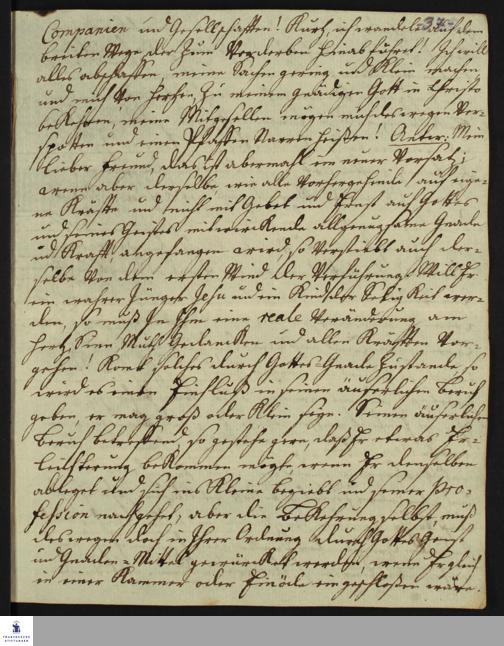 Companien und Gesellschafften! Kurtz, ich wandele auf dem
breiten Wege, der zum Verderben hinab führet! Ich will
alles abschaffen, meine Sachen gering und klein machen
und mich von Hertzen zu meinem gnädigen Gott in Christo
bekehren, meine Mitgesellen mögen mich deswegen ver-
spotten und einen Pfaffen Narren heißen! Autor: Mein
lieber Freund, das ist abermahl ein neuer Vorsatz;
wenn aber derselbe wie alle vorhergehende auf eige-
ne Kräffte und nicht mit Gebet und Ernst auf Gottes
und seines Geistes mitwirckende allgenugsame Gnade
und Krafft angefangen wird, so verstiebt auch der-
selbe von dem ersten Wind der Verführung. Will Er
ein wahrer Jünger Jesu und ein Kind der Seligkeit wer-
den, so muß in Ihm eine reale Veränderung am
Hertz, Sinn, Muth, Gedancken und allen Kräfften vor-
gehen! Komt solches durch Gottes Gnade zustande, so
wird es einen Einfluß in seinen äuserlichen Beruf
geben, er mag groß oder klein seyn. Seinen äuserlichen
Beruf betreffend, so gestehe gern, daß Er etwas Er-
leichterung bekommen mögte, wenn Er denselben
ableget und sich ins Kleine begiebt und seiner Pro-
fession nachgehet, aber die Bekehrung selbst muß
deswegen doch in Ihrer Ordnung durch Gottes Geist
und Gnaden-Mittel gewürcket werden, wenn Er gleich
in einer Kammer oder Einöde eingeschloßen wäre.
FRANCKESCHE
STIFTUNGEN